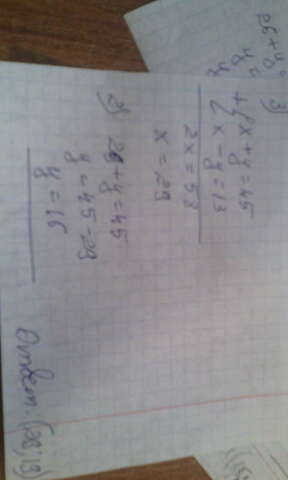 3)
+ { x + y = 45
x - y = 13
2x = 58
x = 29
2) 29 + y = 45
y = 45 - 29
y = 16
Ответ: (29; 13)